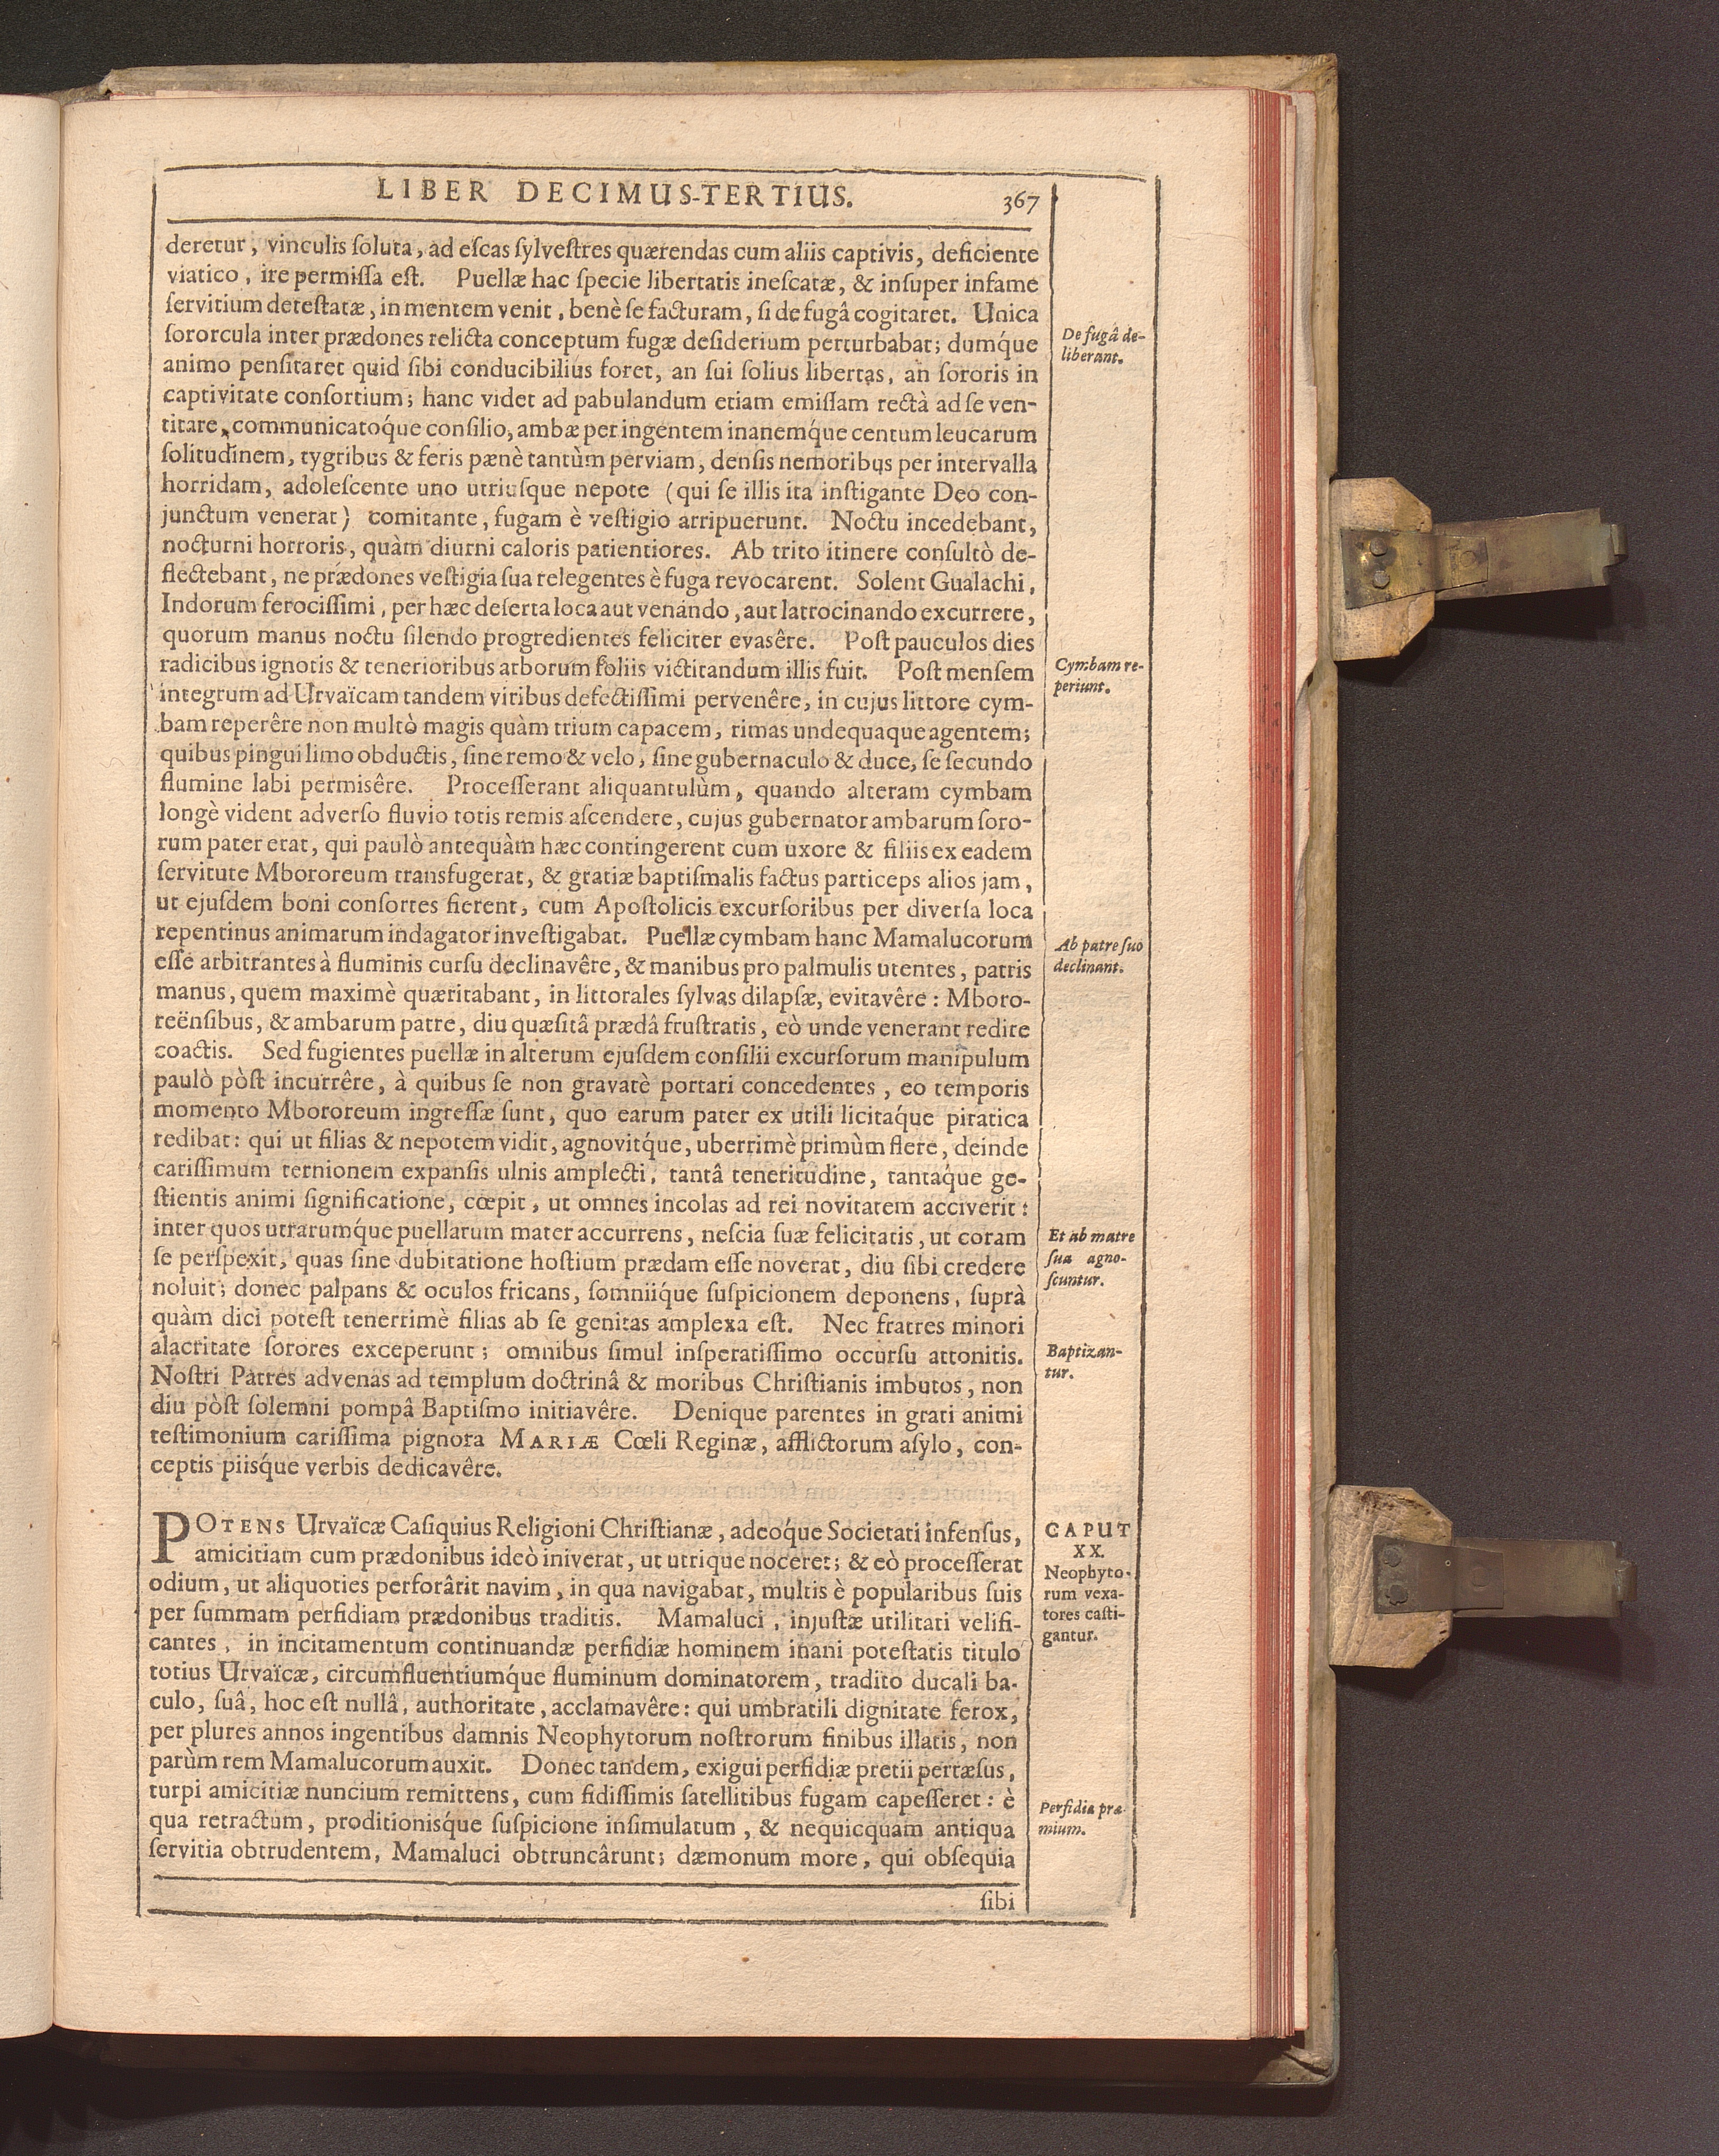 LIBER DECIMUS-TERTIUS. 367
deretur, vinculis soluta, ad escas sylvestres quærendas cum aliis captivis, deficiente
viatico, ire permissa est. Puellæ hac specie libertatis inescatæ, & insuper infame
servitium detestatæ, in mentem venit, benè se facturam, si de fugâ cogitaret. Unica
sororcula inter prædones relicta conceptum fugæ desiderium perturbabat; dumq́ue
animo pensitaret quid sibi conducibilius foret, an sui solius libertas, an sororis in
captivitate consortium; hanc videt ad pabulandum etiam emissam rectà ad se ven-
titare, communicatoq́ue consilio, ambæ per ingentem inanemq́ue centum leucarum
solitudinem, tygribus & feris pænè tantùm perviam, densis nemoribus per intervalla
horridam, adolescente uno utriusque nepote (qui se illis ita instigante Deo con-
junctum venerat) comitante, fugam è vestigio arripuerunt. Noctu incedebant,
nocturni horroris, quàm diurni caloris patientiores. Ab trito itinere consultò de-
flectebant, ne prædones vestigia sua relegentes è fuga revocarent. Solent Gualachi,
Indorum ferocissimi, per hæc deserta loca aut venando, aut latrocinando excurrere,
quorum manus noctu silendo progredientes feliciter evasêre. Post pauculos dies
radicibus ignotis & tenerioribus arborum foliis victitandum illis fuit. Post mensem
integrum ad Urvaïcam tandem viribus defectissimi pervenêre, in cujus littore cym-
bam reperêre non multò magis quàm trium capacem, rimas undequaque agentem;
quibus pingui limo obductis, sine remo & velo, sine gubernaculo & duce, se secundo
flumine labi permisêre. Processerant aliquantulùm, quando alteram cymbam
longè vident adverso fluvio totis remis ascendere, cujus gubernator ambarum soro-
rum pater erat, qui paulò antequàm hæc contingerent cum uxore & filiis ex eadem
servitute Mbororeum transfugerat, & gratiæ baptismalis factus particeps alios jam,
ut ejusdem boni consortes fierent, cum Apostolicis excursoribus per diversa loca
repentinus animarum indagator investigabat. Puellæ cymbam hanc Mamalucorum
esse arbitrantes à fluminis cursu declinavêre, & manibus pro palmulis utentes, patris
manus, quem maximè quæritabant, in littorales sylvas dilapsæ, evitavêre: Mboro-
reënsibus, & ambarum patre, diu quæsitâ prædâ frustratis, eò unde venerant redire
coactis. Sed fugientes puellæ in alterum ejusdem consilii excursorum manipulum
paulò pòst incurrêre, à quibus se non gravatè portari concedentes, eo temporis
momento Mbororeum ingressæ sunt, quo earum pater ex utili licitaq́ue piratica
redibat: qui ut filias & nepotem vidit, agnovitq́ue, uberrimè primùm flere, deinde
carissimum ternionem expansis ulnis amplecti, tantâ teneritudine, tantaq́ue ge-
stientis animi significatione, cœpit, ut omnes incolas ad rei novitatem acciverit:
inter quos utrarumq́ue puellarum mater accurrens, nescia suæ felicitatis, ut coram
se perspexit, quas sine dubitatione hostium prædam esse noverat, diu sibi credere
noluit; donec palpans & oculos fricans, somniiq́ue suspicionem deponens, suprà
quàm dici potest tenerrimè filias ab se genitas amplexa est. Nec fratres minori
alacritate sorores exceperunt; omnibus simul insperatissimo occursu attonitis.
Nostri Patres advenas ad templum doctrinâ & moribus Christianis imbutos, non
diu pòst solemni pompâ Baptismo initiavêre. Denique parentes in grati animi
testimonium carissima pignora MARIÆ Cœli Reginæ, afflictorum asylo, con-
ceptis piisq́ue verbis dedicavêre.
POTENS Urvaïcæ Casiquius Religioni Christianæ, adeoq́ue Societati infensus,
amicitiam cum prædonibus ideò iniverat, ut utrique noceret; & eò processerat
odium, ut aliquoties perforârit navim, in qua navigabat, multis è popularibus suis
per summam perfidiam prædonibus traditis. Mamaluci, injustæ utilitati velifi-
cantes, in incitamentum continuandæ perfidiæ hominem inani potestatis titulo
totius Urvaïcæ, circumfluentiumq́ue fluminum dominatorem, tradito ducali ba-
culo, suâ, hoc est nullâ, authoritate, acclamavêre: qui umbratili dignitate ferox,
per plures annos ingentibus damnis Neophytorum nostrorum finibus illatis, non
parùm rem Mamalucorum auxit. Donec tandem, exigui perfidiæ pretii pertæsus,
turpi amicitiæ nuncium remittens, cum fidissimis satellitibus fugam capesseret: è
qua retractum, proditionisq́ue suspicione insimulatum, & nequicquam antiqua
servitia obtrudentem, Mamaluci obtruncârunt; dæmonum more, qui obsequia
sibi
De fugâ de-
liberant.
Cymbam re-
periunt.
Ab patre suo
declinant.
Et ab matre
sua agno-
scuntur.
Baptizan-
tur.
CAPUT
XX.
Neophyto-
rum vexa-
tores casti-
gantur.
Perfidiæ præ-
mium.